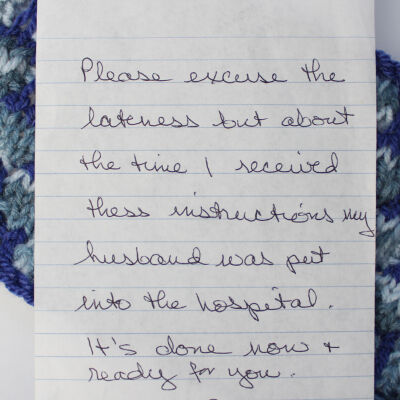 Please excuse the
lateness but about
the time I received
thess instructions my
husband was put
into the hospital.
It's done now +
ready for you.